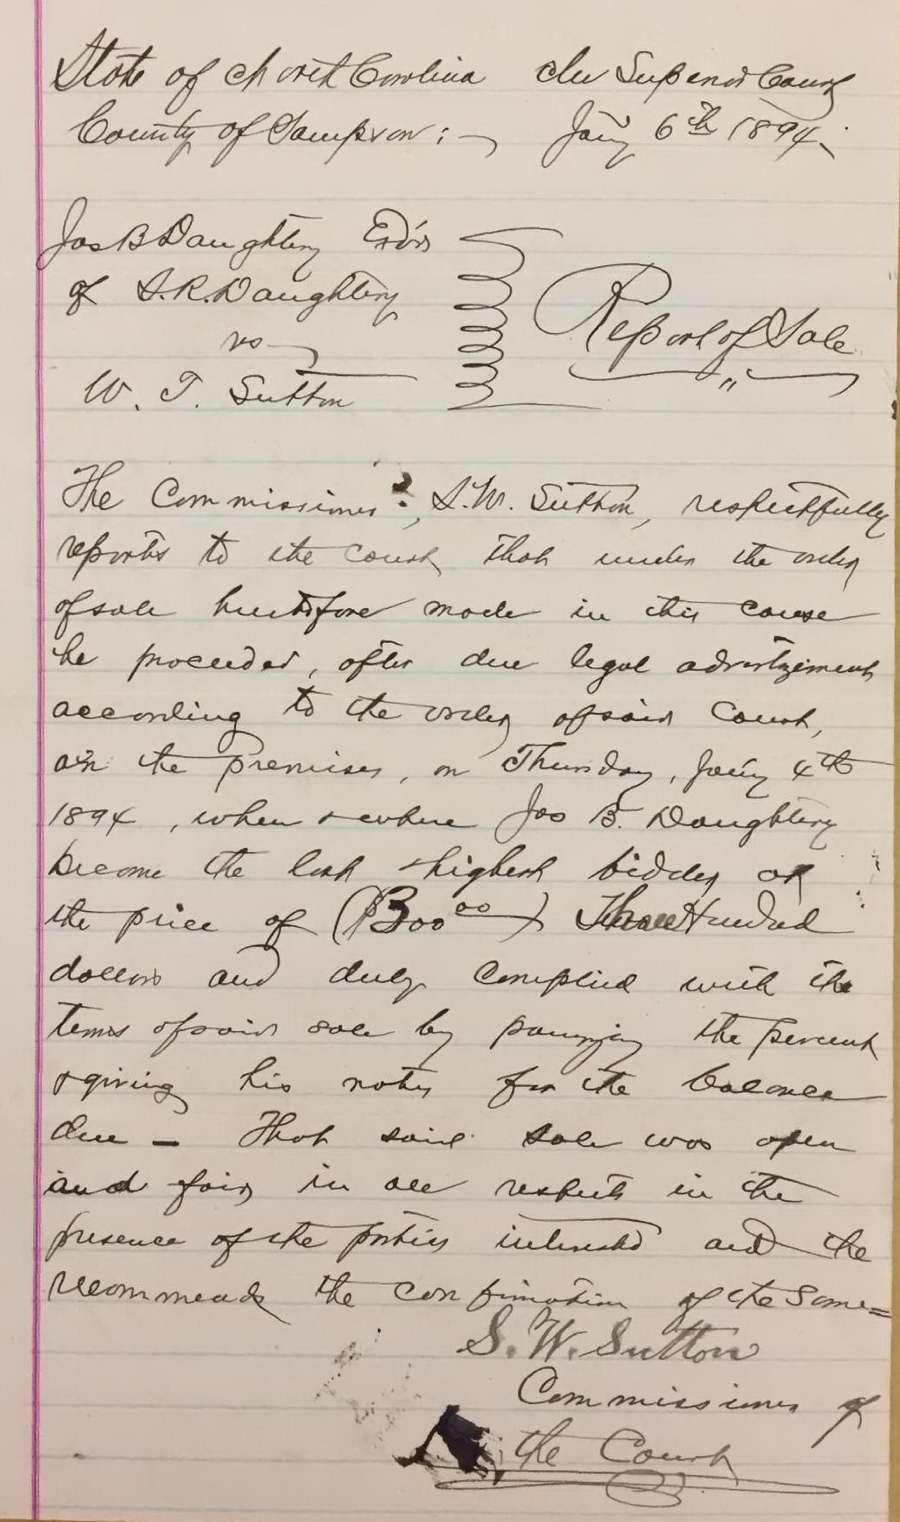 State of North Carolina In Superior Court
County of Sampson :- Jan'y 6th 1894.
Jas B Daughtery Ex'r
of S. R. Daughtery
vs
W. T. Sutton
Report of Sale
"
The Commissioner, S. W. Sutton, respectfully
reports to the court that under the order
of sale heretofore made in this cause
he proceeded, after due legal advertizement
according to the order of said Court,
on the premises, on Thursday, Jan'y 4th
1894, when & where Jas B. Daughtery
became the last & highest bidder at
the price of ($300 00) Three Hundred
dollars and duly complied with the
terms of said sale by paying the percent
& giving his notes for the balance
due - That said sale was open
and fair in all respects in the
presence of the parties interested and the
recommends the confirmation of the same=
S. W. Sutton
Commissioner of
the Court